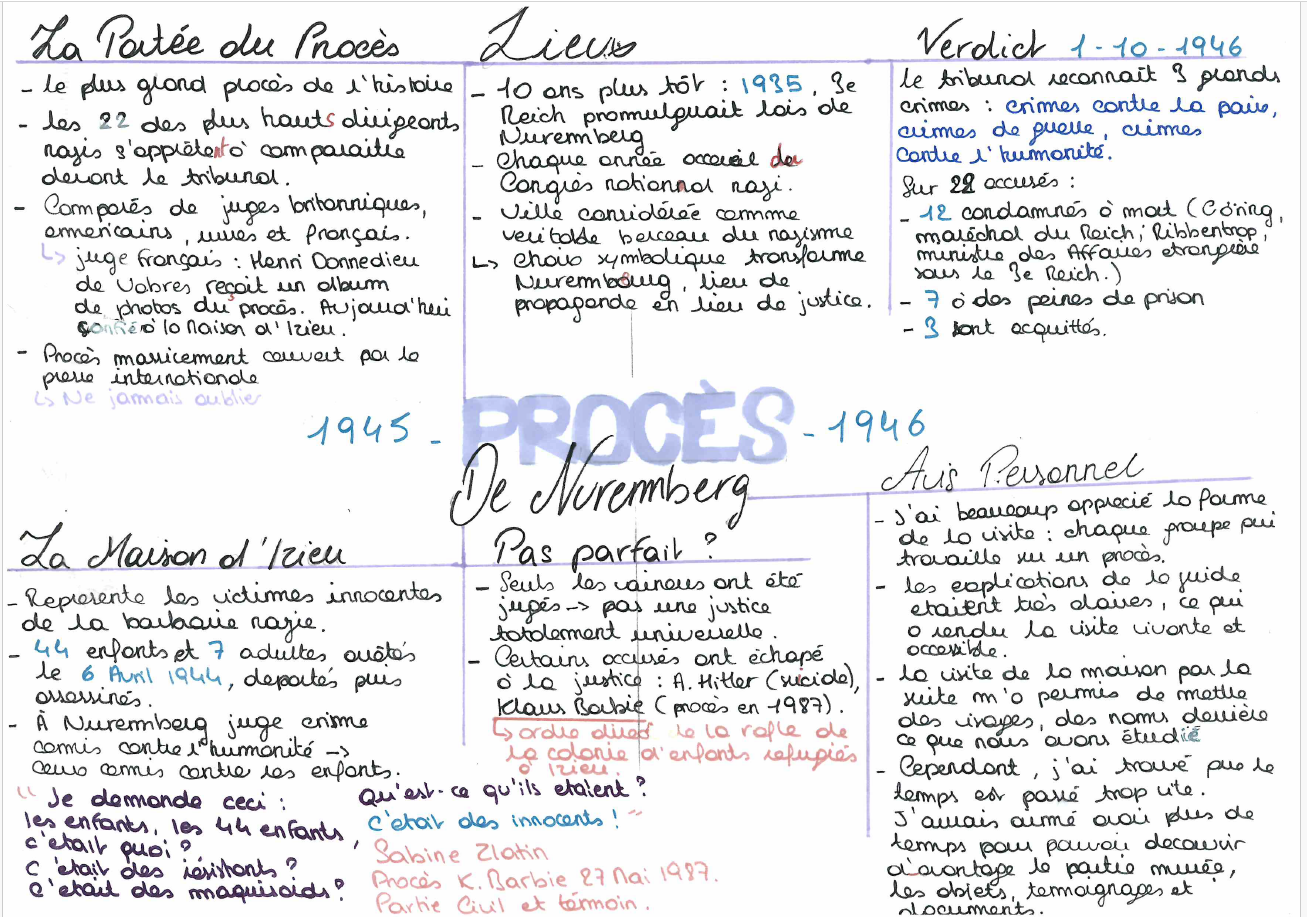 La Portée du Procès
- le plus grand procès de l'histoire
- les 22 des plus hauts dirigeants
nazis s'apprêtent à comparaître
devant le tribunal.
- Composés de juges britanniques,
américains, russes et français.
↳ juge français : Henri Donnedieu
de Vabres reçoit un album
de photos du procès. Aujourd'hui
confié à la Maison d'Izieu.
- Procès massivement couvert par la
presse internationale
↳ Ne jamais oublier
Lieux
- 10 ans plus tôt : 1935, 3e
Reich promulguait lois de
Nuremberg
- Chaque année accueil du
Congrès national nazi.
- Ville considérée comme
veritable berceau du nazisme
↳ choix symbolique transforme
Nuremberg, lieu de
propagande en lieu de justice.
Verdict 1-10-1946
le tribunal reconnait 3 grands
crimes : crimes contre la paix,
crimes de guerre, crimes
contre l'humanité.
Sur 22 accusés :
- 12 condamnés à mort (Göring,
maréchal du Reich, Ribbentrop,
ministre des Affaires etrangère
sous le 3e Reich.)
- 7 à des peines de prison
- 3 sont acquittés.
1945 - PROCÈS - 1946
De Nuremberg
La Maison d'Izieu
- Represente les victimes innocentes
de la barbarie nazie.
- 44 enfants et 7 adultes arrêtés
le 6 Avril 1944, deportés puis
assassinés.
- À Nuremberg juge crime
comis contre l'humanité ->
ceux comis contre les enfants.
" Je demande ceci :
les enfants, les 44 enfants,
c'etait quoi ?
C'était des résistants ?
C'etait des maquisards ?
Qu'est-ce qu'ils etaient ?
C'etait des innocents ! "
Sabine Zlatin
Procès K. Barbie 27 Mai 1987.
Partie Civil et témoin.
Pas parfait ?
- Seuls les vaincus ont été
jugés -> pas une justice
totalement universelle.
- Certains accusés ont échapé
à la justice : A. Hitler (suicide),
Klaus Barbie (procès en 1987).
↳ ordre direct de la rafle de
la colonie d'enfants refugiés
à Izieu.
Avis Personnel
- J'ai beaucoup apprecié la forme
de la visite : chaque groupe qui
travaille sur un procès.
- les explications de la guide
etaient très claires, ce qui
a rendu la visite vivante et
accessible.
- la visite de la maison par la
suite m'a permis de mettre
des visages, des noms derrière
ce que nous avons étudié
- Cependant, j'ai trouvé que le
temps est passé trop vite.
J'aurais aimé avoir plus de
temps pour pouvoir decouvrir
d'avantage la partie musée,
les objets, temoignages et
documents.